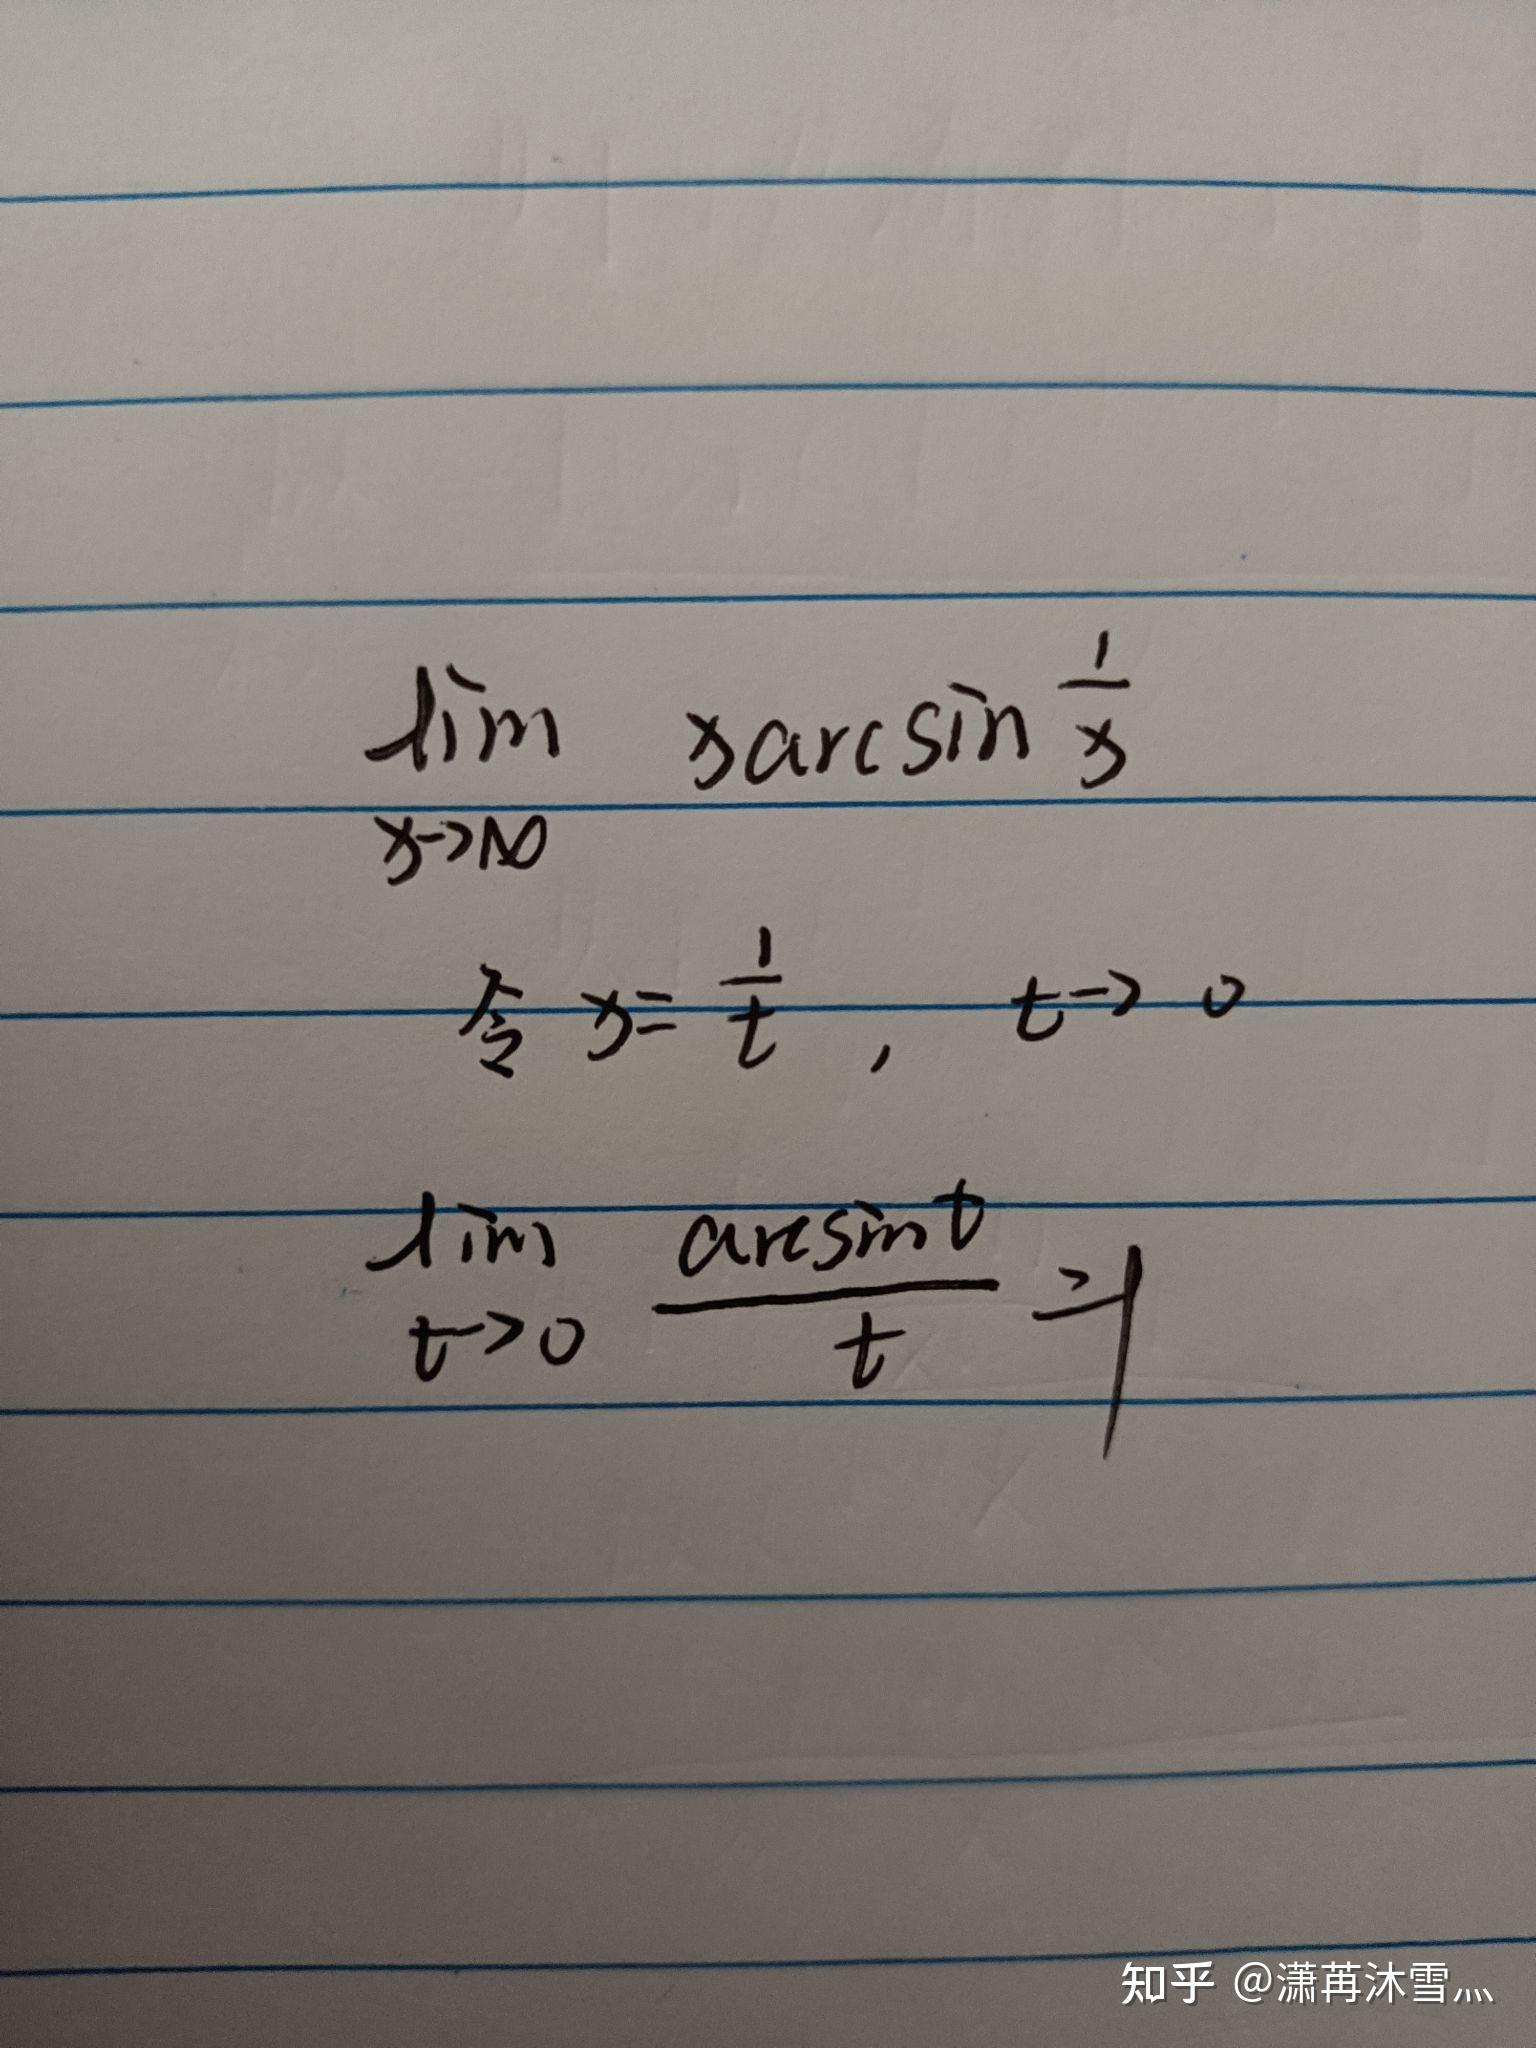 lim x→∞ x arcsin 1/x
令 x = 1/t , t→0
lim t→0 arcsin t / t = 1
知乎 @潇苒沐雪灬